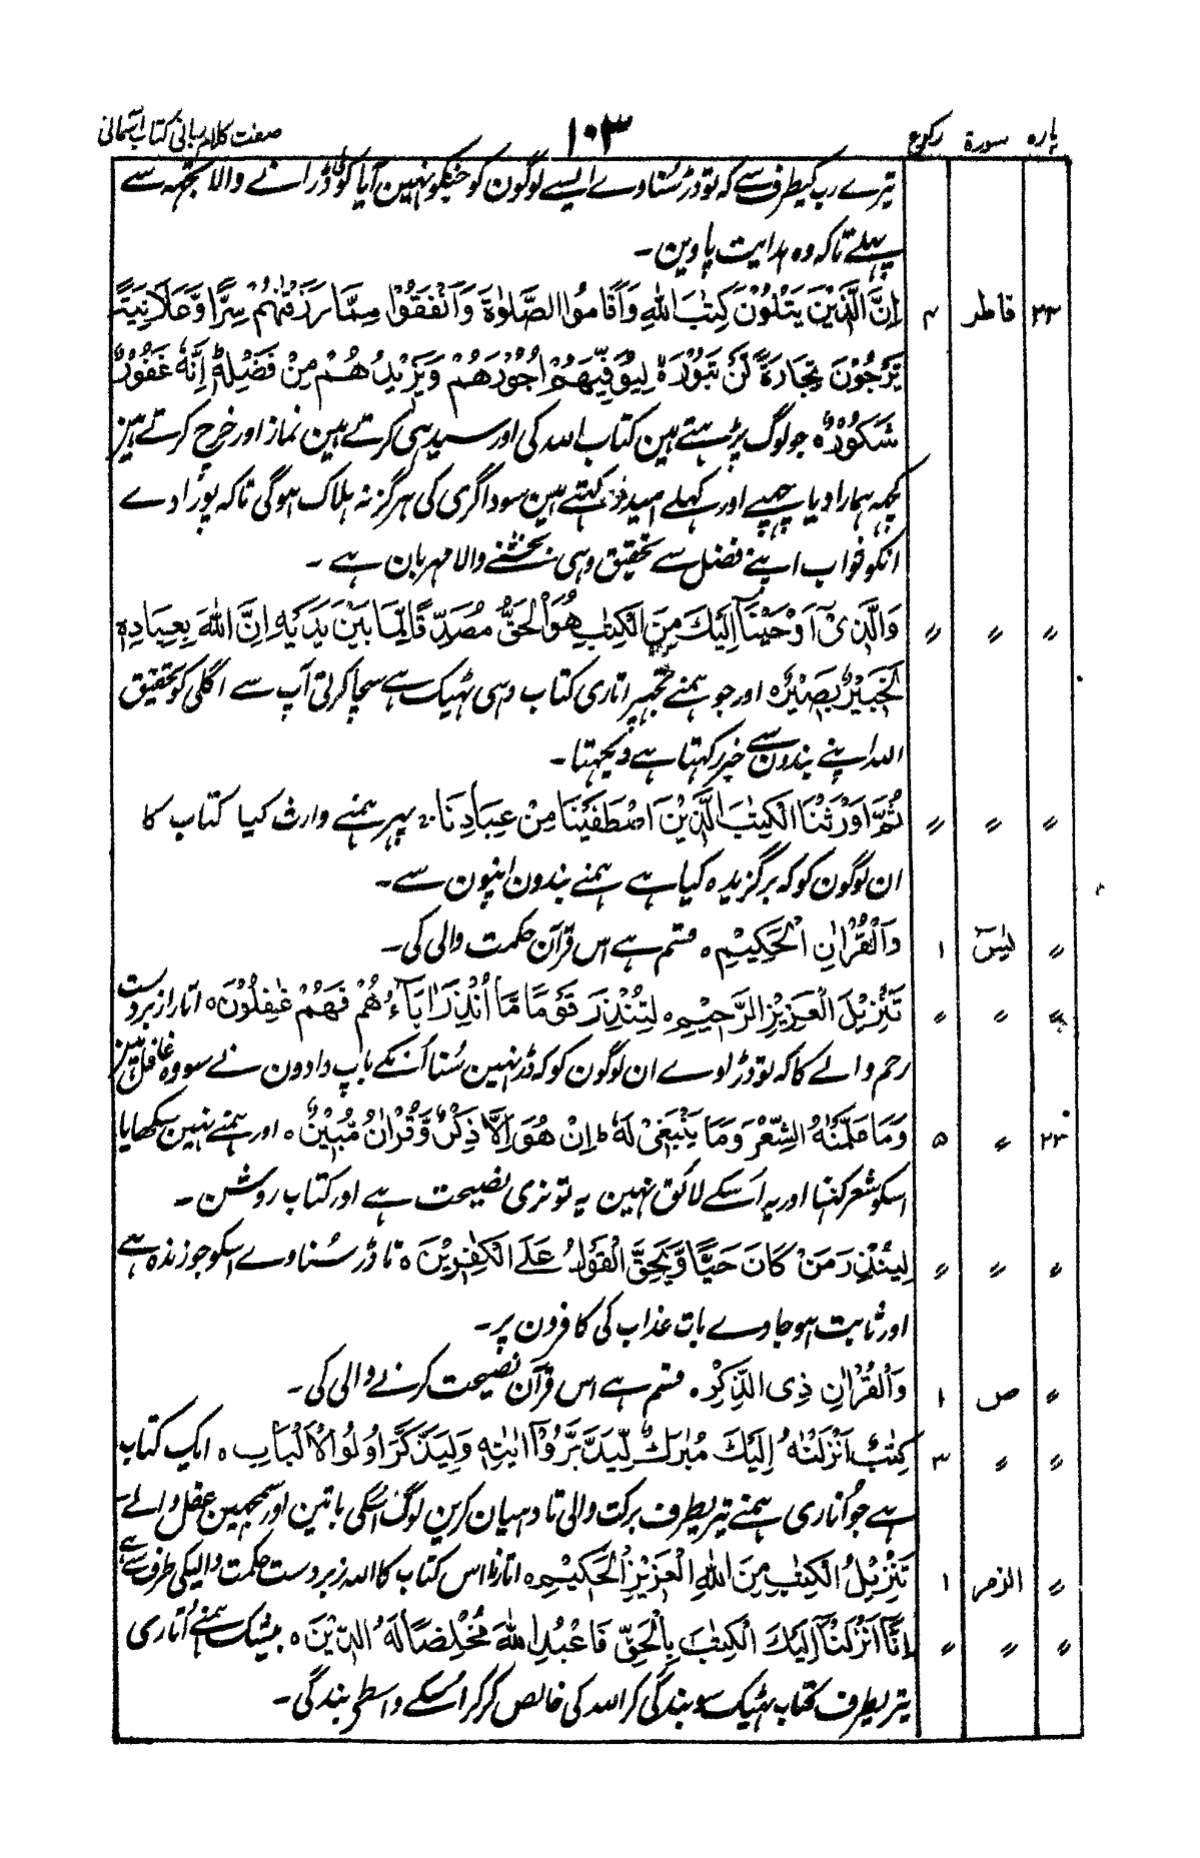 پارہ سورۃ رکوع ۱۰۳ صفت کلام ربانی کتاب آسمانی
تیرے رب کیطرف سے کہ تو ڈر سُناوے ایسے لوگون کو جنکو نہین آیا کوئی ڈرانے والا تجھہ سے
پہلے تاکہ وہ ہدایت پاوین۔
۲۲ فاطر ۴ اِنَّ الَّذِیْنَ یَتْلُوْنَ کِتٰبَ اللّٰہِ وَاَقَامُوا الصَّلٰوۃَ وَاَنْفَقُوْا مِمَّا رَزَقْنٰہُمْ سِرًّا وَّعَلَانِیَۃً
یَّرْجُوْنَ تِجَارَۃً لَّنْ تَبُوْرَ ہ لِیُوَفِّیَہُمْ اُجُوْرَھُمْ وَیَزِیْدَھُمْ مِنْ فَضْلِہٖ اِنَّہٗ غَفُوْرٌ
شَکُوْرٌ ہ جو لوگ پڑہتے ہین کتاب اللہ کی اور سیدہی کرتے ہین نماز اور خرچ کرتے ہین
کچہہ ہمارا دیا چہپے اور کہلے امیدوار ہین سوداگری کی ہرگز نہ ہلاک ہوگی تاکہ پورا دے
انکو ثواب اپنے فضل سے تحقیق وہی بخشنے والا مہربان ہے ۔
〃 〃 〃 وَالَّذِیْ اَوْحَیْنَا اِلَیْکَ مِنَ الْکِتٰبِ ھُوَ الْحَقُّ مُصَدِّقًا لِّمَا بَیْنَ یَدَیْہِ اِنَّ اللّٰہَ بِعِبَادِہٖ
لَخَبِیْرٌ بَصِیْرٌ ہ اور جو ہمنے تجہپر اتاری کتاب وہی ٹہیک ہے سچا کرتی آپ سے اگلی کو تحقیق
اللہ اپنے بندون سے خبر رکہتا ہے دیکہتا۔
〃 〃 〃 ثُمَّ اَوْرَثْنَا الْکِتٰبَ الَّذِیْنَ اصْطَفَیْنَا مِنْ عِبَادِنَا۔ پہر ہمنے وارث کیا کتاب کا
ان لوگون کو کہ برگزیدہ کیا ہے ہمنے بندون اپنون سے۔
〃 یٰسٓ ۱ وَالْقُرْاٰنِ الْحَکِیْمِ ہ قسم ہے اس قرآن حکمت والی کی۔
〃 〃 〃 تَنْزِیْلَ الْعَزِیْزِ الرَّحِیْمِ ہ لِتُنْذِرَ قَوْمًا مَّا اُنْذِرَ اٰبَآءُھُمْ فَھُمْ غٰفِلُوْنَ ہ اتارا زبردست
رحم والے کا کہ تو ڈراوے ان لوگون کو کہ ڈر نہین سُنا اُنکے باپ دادون نے سو وہ غافل ہین
۲۳ 〃 ۵ وَمَا عَلَّمْنٰہُ الشِّعْرَ وَمَا یَنْبَغِیْ لَہٗ ط اِنْ ھُوَ اِلَّا ذِکْرٌ وَّقُرْاٰنٌ مُّبِیْنٌ ہ اور ہمنے نہین سکہایا
اسکو شعر کہنا اور یہ اُسکے لائق نہین یہ تو نری نصیحت ہے اور کتاب روشن ۔
〃 〃 〃 لِیُنْذِرَ مَنْ کَانَ حَیًّا وَّیَحِقَّ الْقَوْلُ عَلَی الْکٰفِرِیْنَ ہ تا ڈر سُناوے اسکو جو زندہ ہے
اور ثابت ہو جاوے بات عذاب کی کافرون پر۔
〃 ص ۱ وَالْقُرْاٰنِ ذِی الذِّکْرِ ہ قسم ہے اس قرآن نصیحت کرنے والی کی۔
〃 〃 ۳ کِتٰبٌ اَنْزَلْنٰہُ اِلَیْکَ مُبٰرَکٌ لِّیَدَّبَّرُوْٓا اٰیٰتِہٖ وَلِیَتَذَکَّرَ اُولُوا الْاَلْبَابِ ہ ایک کتاب
ہے جو اُتاری ہمنے تیریطرف برکت والی تا دہیان کرین لوگ اسکی باتین اور سمجہین عقل والے
〃 الزمر ۱ تَنْزِیْلُ الْکِتٰبِ مِنَ اللّٰہِ الْعَزِیْزِ الْحَکِیْمِ ہ اتارنا اس کتاب کا اللہ زبردست حکمت والیکی طرف سے ہے
〃 〃 〃 اِنَّآ اَنْزَلْنَآ اِلَیْکَ الْکِتٰبَ بِالْحَقِّ فَاعْبُدِ اللّٰہَ مُخْلِصًا لَّہُ الدِّیْنَ ہ بیشک ہمنے اُتاری
تیریطرف کتاب ٹہیک سو بندگی کر اللہ کی خالص کرکر اُسکے واسطی بندگی۔